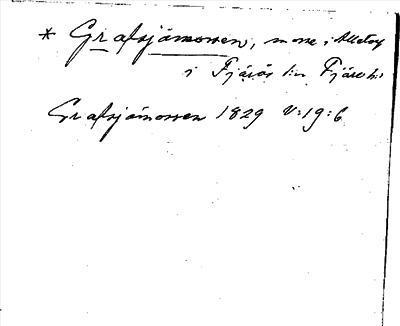 * Grafsjömossen, mosse i
i Fjärås sn Fjäre hd
Grafsjömossen 1829 V:19:6